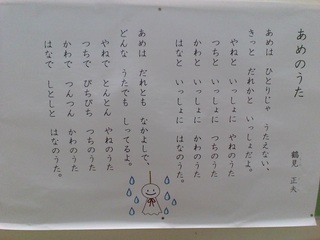 あめのうた
鶴見 正夫
あめは ひとりじゃ うたえない、
きっと だれかと いっしょだよ。
やねと いっしょに やねのうた
つちと いっしょに つちのうた
かわと いっしょに かわのうた
はなと いっしょに はなのうた。
あめは だれとも なかよしで、
どんな うたでも しってるよ。
やねで とんとん やねのうた
つちで ぴちぴち つちのうた
かわで つんつん かわのうた
はなで しとしと はなのうた。